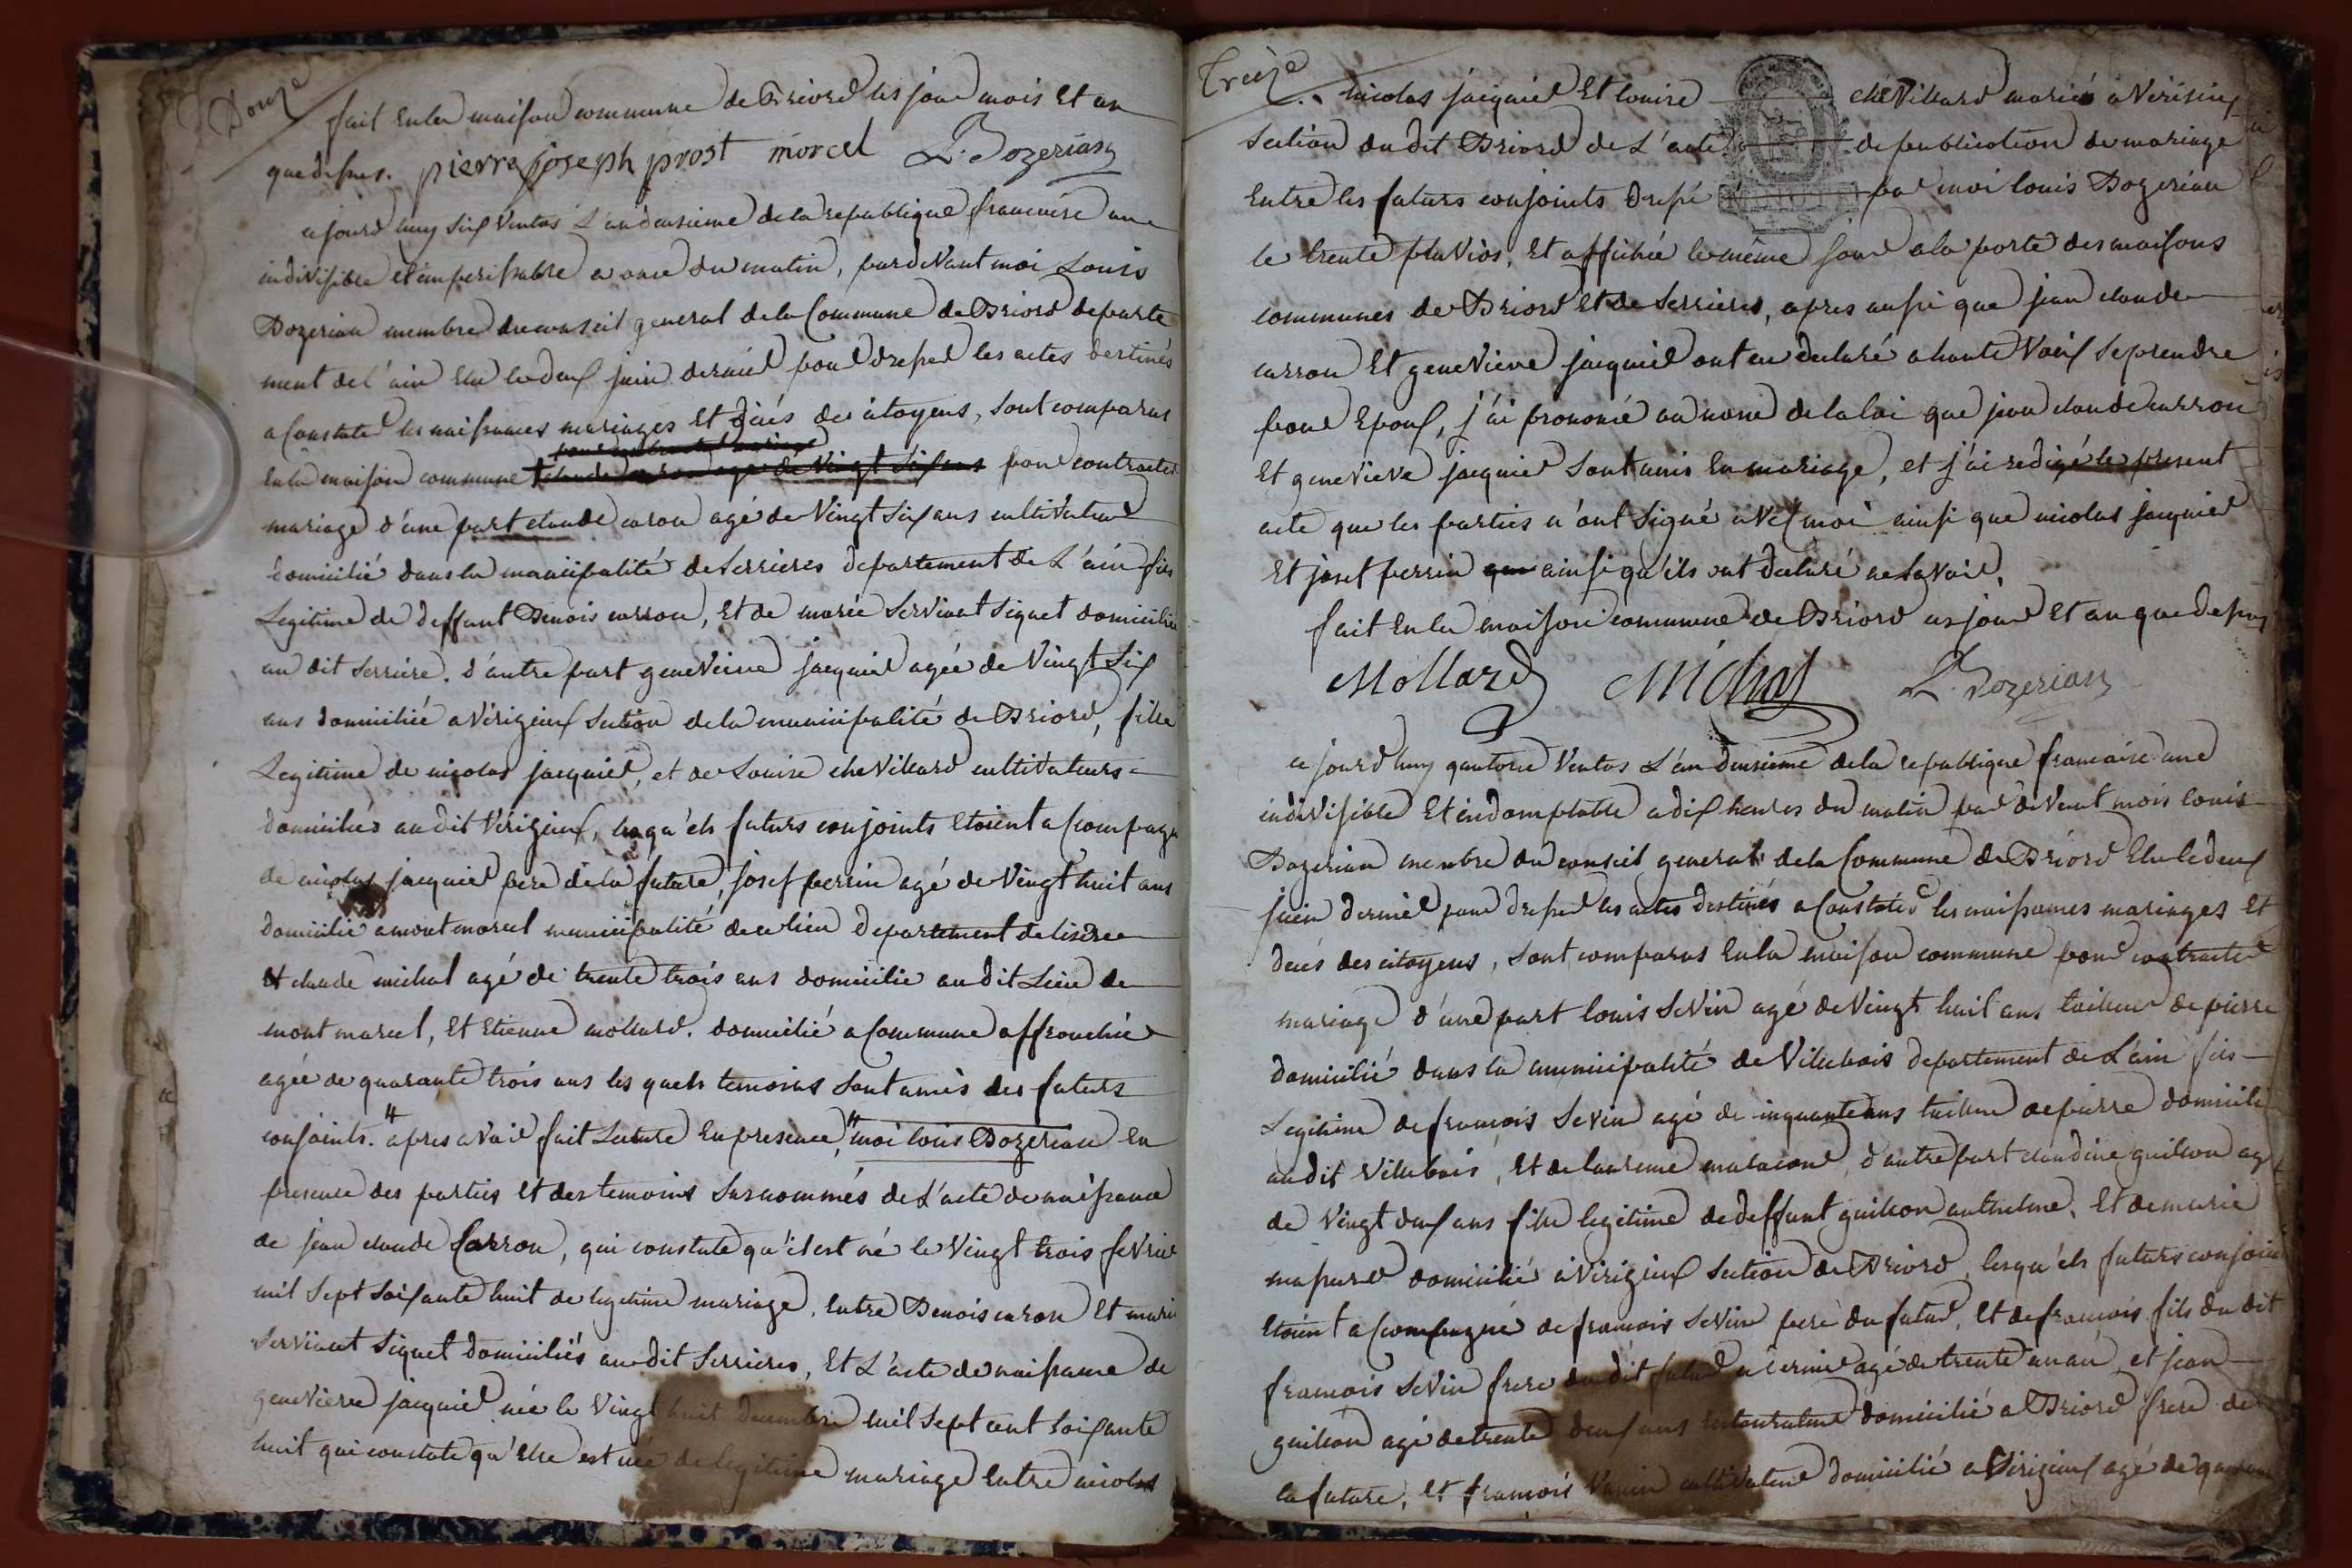 Douze
fait En la maison commune de Briord les jour mois Et an
que dessus. pierre joseph prost morcel L. Bozerian
ce jourd huy six Ventos L'an deusieme de la republique francaise une
indivisible et imperissable a onze du matin, pardevant moi Louis
Bozerian membre du conseil general de la Commune de Briord departe
ment de l'ain Elu le deux juin dernier pour dresser les actes destinés
a Constater les naissances mariages Et décés des citoyens, sont comparus
En la maison commune pour contracter
mariage d'une part claude caron agé de Vingt six ans cultivateur
domicilié dans la municipalité de Serrieres departement de L'ain fils
Legitime de deffunt Benois carron, Et de marie Servient Siquet domiciliée
au dit Serriere. d'autre part genevieve jacquier agée de Vingt Six
ans domiciliée a Vérizieux Section de la municipalité de Briord, fille
Legitime de nicolas jacquier, et de Louise cheVillard cultivateurs
domiciliés au dit Vérizieux, lesqu'els futurs conjoints Etoient a Compagn
de nicolas jacquier pere de la future, josef perrin agé de Vingt huit ans
domicilié a mont marcel municipalité de ce lieu departement de lisere
Et claude michal agé de trente trois ans domicilié au dit Lieu de
mont marcel, Et Etienne mollard. domicilié a Commune affranchie
agée de quarante trois ans les quels temoins sont amis des futurs
conjoints. apres avoir fait Lecture En presence, moi louis Bozerian En
presence des parties Et des temoins Surnommés de L'acte de naissance
de jean claude Carron, qui constate qu'il est né le Vingt trois fevrier
mil Sept Soixante huit de legitime mariage, Entre Benois caron Et marie
Servient Siquet domiciliés au dit Serrieres, Et L'acte de naissance de
genevieve jacquier née le Vingt huit decembre mil Sept cent Soixante
huit qui constate qu'Elle est née de legitime mariage Entre nicolas
Treize
nicolas jacquier Et louise cheVillard mariés a Verisieux
Section du dit Briord de L'acte de publication de mariage
Entre les futurs conjoints dressé par moi louis Bozerian
le trente pluvios, Et affichée le même jour a la porte des maisons
communes de Briord Et de Serrieres, apres aussi que jean claude
carron Et genevieve jacquier ont eu declaré a haute Voix Se prendre
pour Epoux, j'ai prononcé au nom de la loi que jean claude carron
Et genevieve jacquier sont unis En mariage, et j'ai redigé le present
acte que les parties n'ont signé avec moi ainsi que nicolas jacquier
Et josef perrin que ainsi qu'ils ont declaré ne savoir.
fait En la maison commune de Briord ces jour Et an que dessus
Mollard Michal L. Bozerian
ce jourd huy quatorze Ventos L'an deusieme de la republique francaise une
indivisible Et indomptable a dix heures du matin par devant mois louis
Bozerian membre du conseil general de la Commune de Briord Elu le deux
juin dernier pour dresser les actes destinés a Constater les naissances mariages Et
decés des citoyens, sont comparus En la maison commune pour contracter
mariage d'une part louis Sevin agé de Vingt huit ans tailleur de pierre
domicilié dans la municipalité de Villebois departement de L'ain fils
Legitime de francois Sevin agé de cinquante ans tailleur de pierre domicilié
au dit Villebois, Et de laurence d'autre part claudine guillon ag
de Vingt deux ans fille legitime de deffunt guillon anthelme, Et de marie
domicilié a Virizieux Section de Briord, lesqu'els futurs conjoints
Etoient a Compagné de francois Sevin pere du futur, Et de francois fils du dit
francois Sevin frere du dit futur ce dernier agé de trente un an, et jean
guillon agé de trente deux ans domicilié a Briord frere de
la future, Et francois cultivateur domicilié a Virizieux agé de